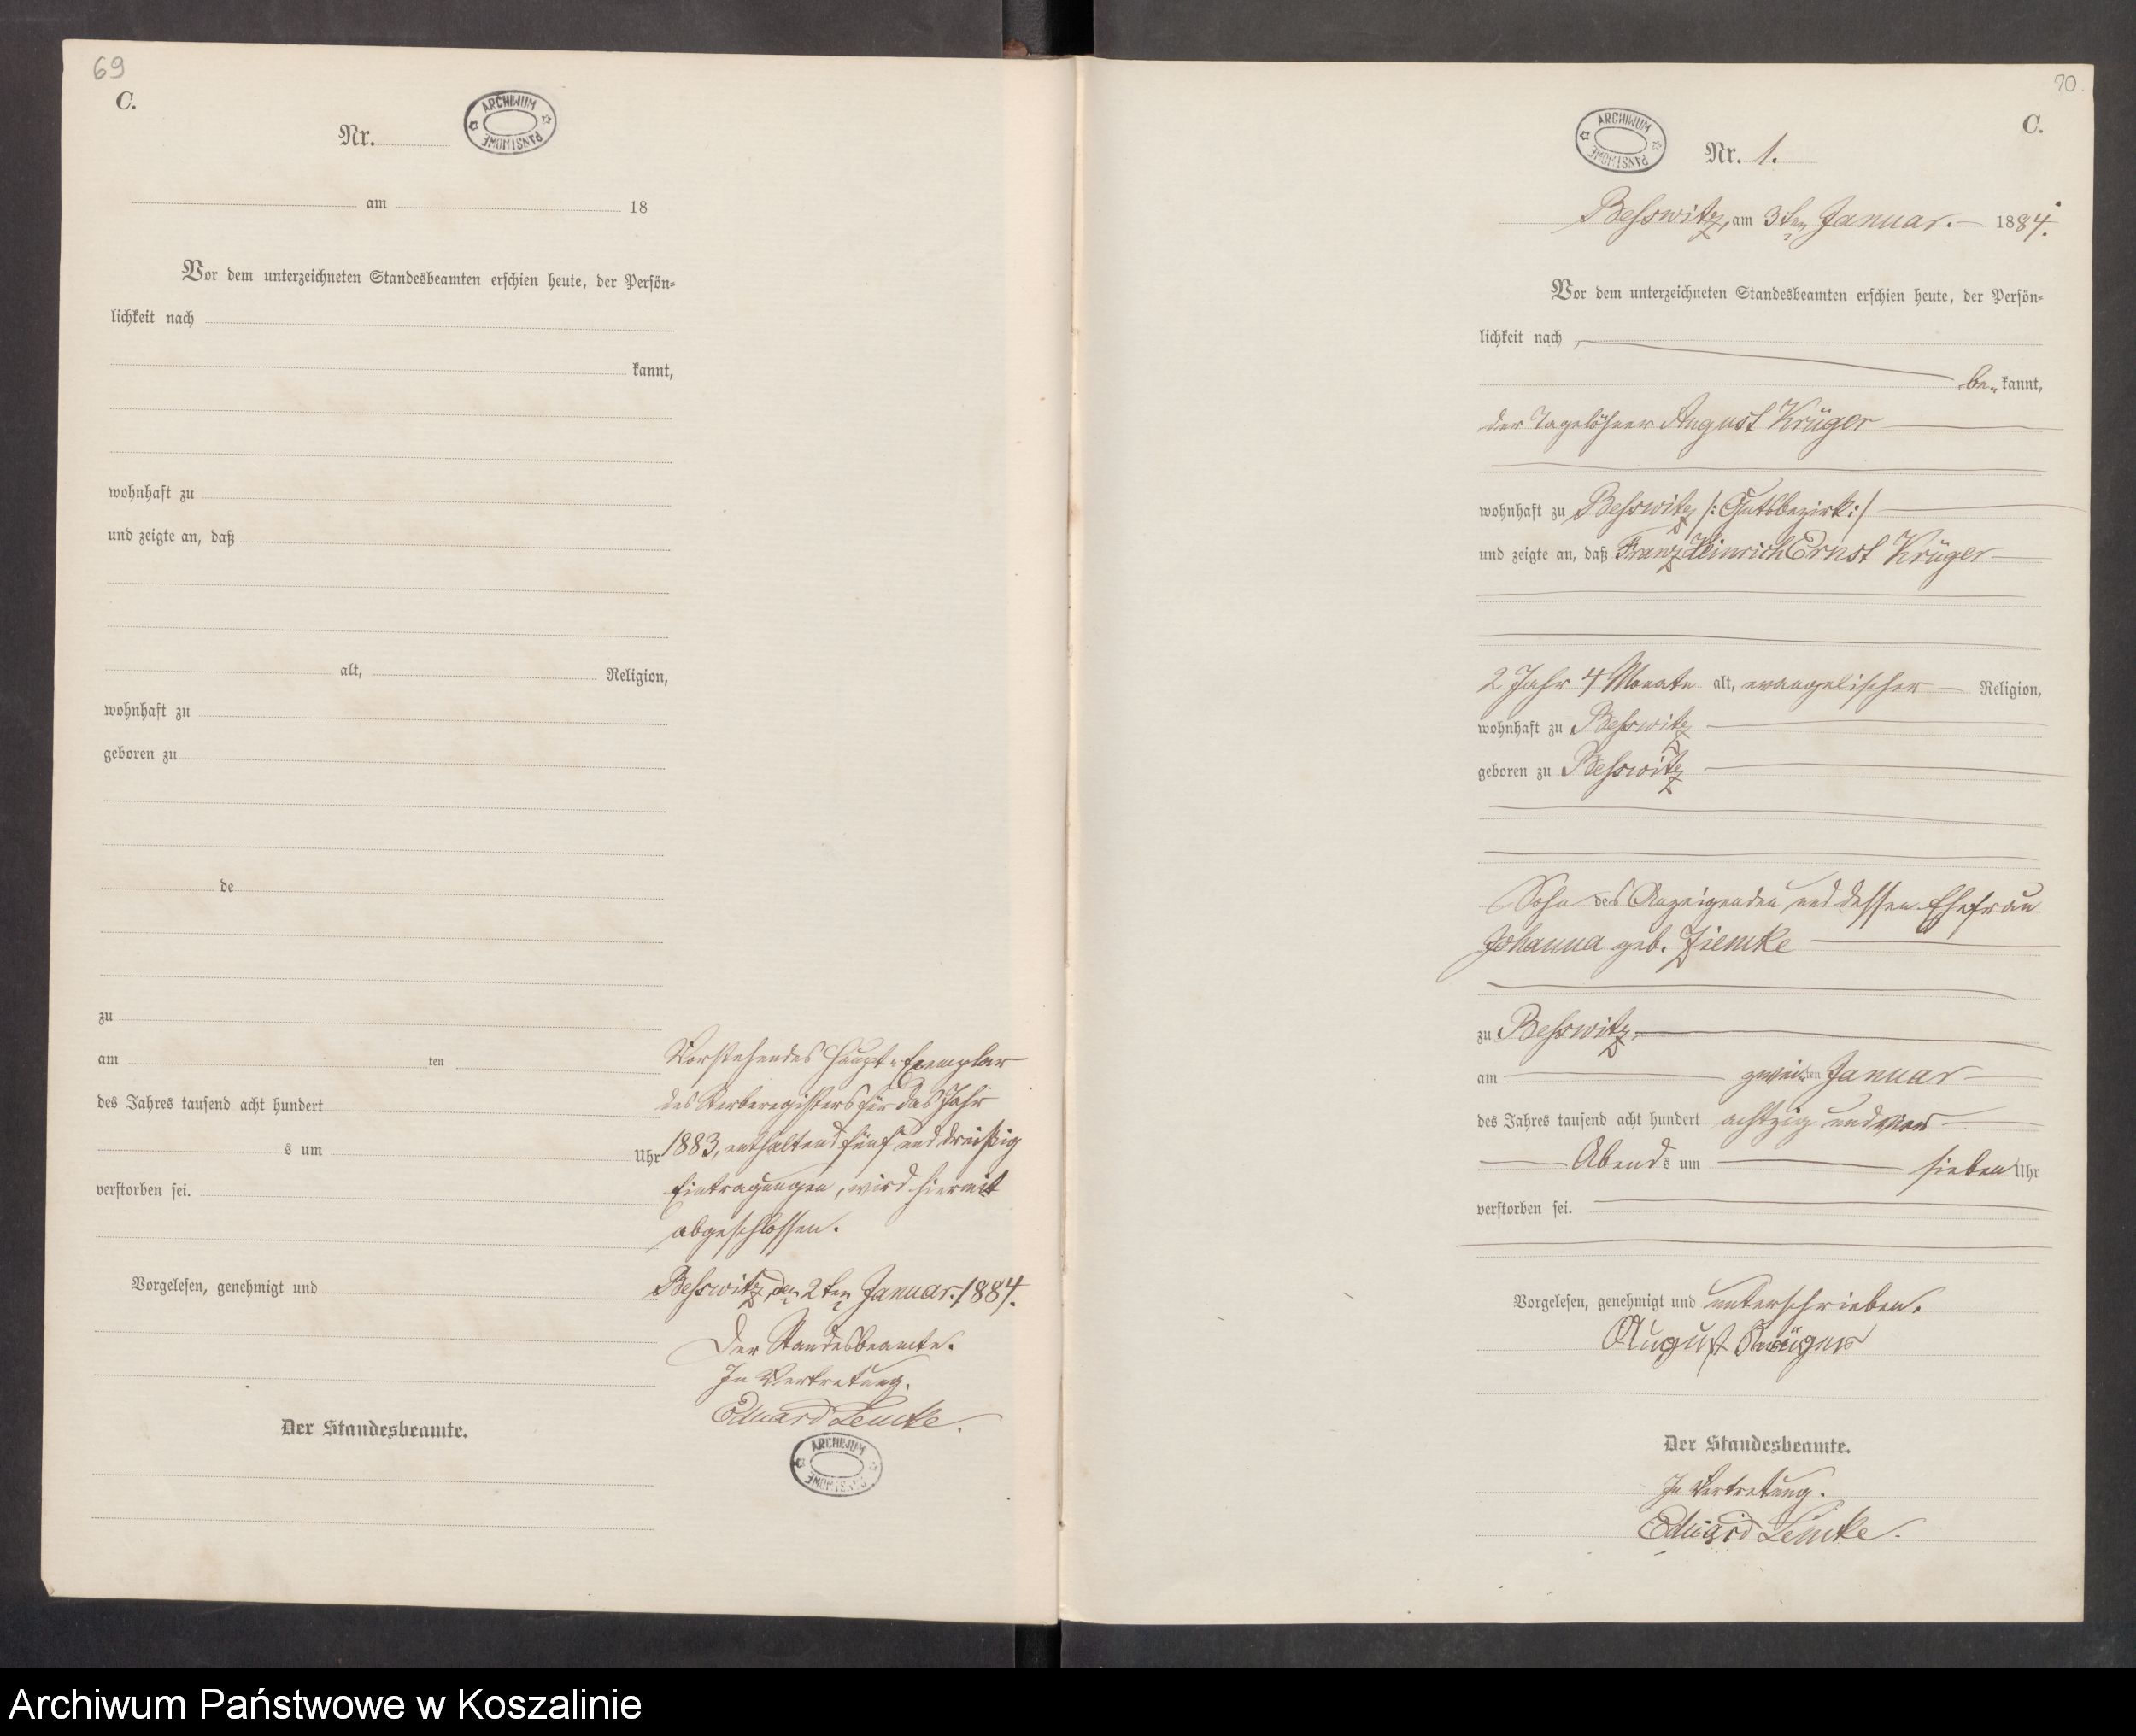 69
C.
Nr.
ARCHIWUM PAŃSTWOWE
am 18
Vor dem unterzeichneten Standesbeamten erschien heute, der Persön-
lichkeit nach
kannt,
wohnhaft zu
und zeigte an, daß
alt, Religion,
wohnhaft zu
geboren zu
de
zu
am ten
des Jahres tausend acht hundert
s um Uhr
verstorben sei.
Vorgelesen, genehmigt und
Der Standesbeamte.
Vorstehendes Haupt-Exemplar
des Sterberegisters für das Jahr
1883, enthaltend fünf und dreißig
Eintragungen, wird hiermit
abgeschlossen.
Besswitz, den 2ten Januar. 1884.
Der Standesbeamte.
In Vertretung.
Eduard Lemke.
ARCHIWUM PAŃSTWOWE
70.
C.
ARCHIWUM PAŃSTWOWE
Nr. 1.
Besswitz, am 3ten Januar. 1884.
Vor dem unterzeichneten Standesbeamten erschien heute, der Persön-
lichkeit nach,
be-kannt,
der Tagelöhner August Krüger
wohnhaft zu Besswitz /: Gutsbezirk :/
und zeigte an, daß Franz Heinrich Ernst Krüger
2 Jahr 4 Monate alt, evangelischer Religion,
wohnhaft zu Besswitz
geboren zu Besswitz
Sohn des Anzeigenden und dessen Ehefrau
Johanna geb. Ziemke
zu Besswitz,
am zweiten Januar
des Jahres tausend acht hundert achtzig und vier
Abends um sieben Uhr
verstorben sei.
Vorgelesen, genehmigt und unterschrieben.
August Krüger
Der Standesbeamte.
In Vertretung.
Eduard Lemke.
Archiwum Państwowe w Koszalinie